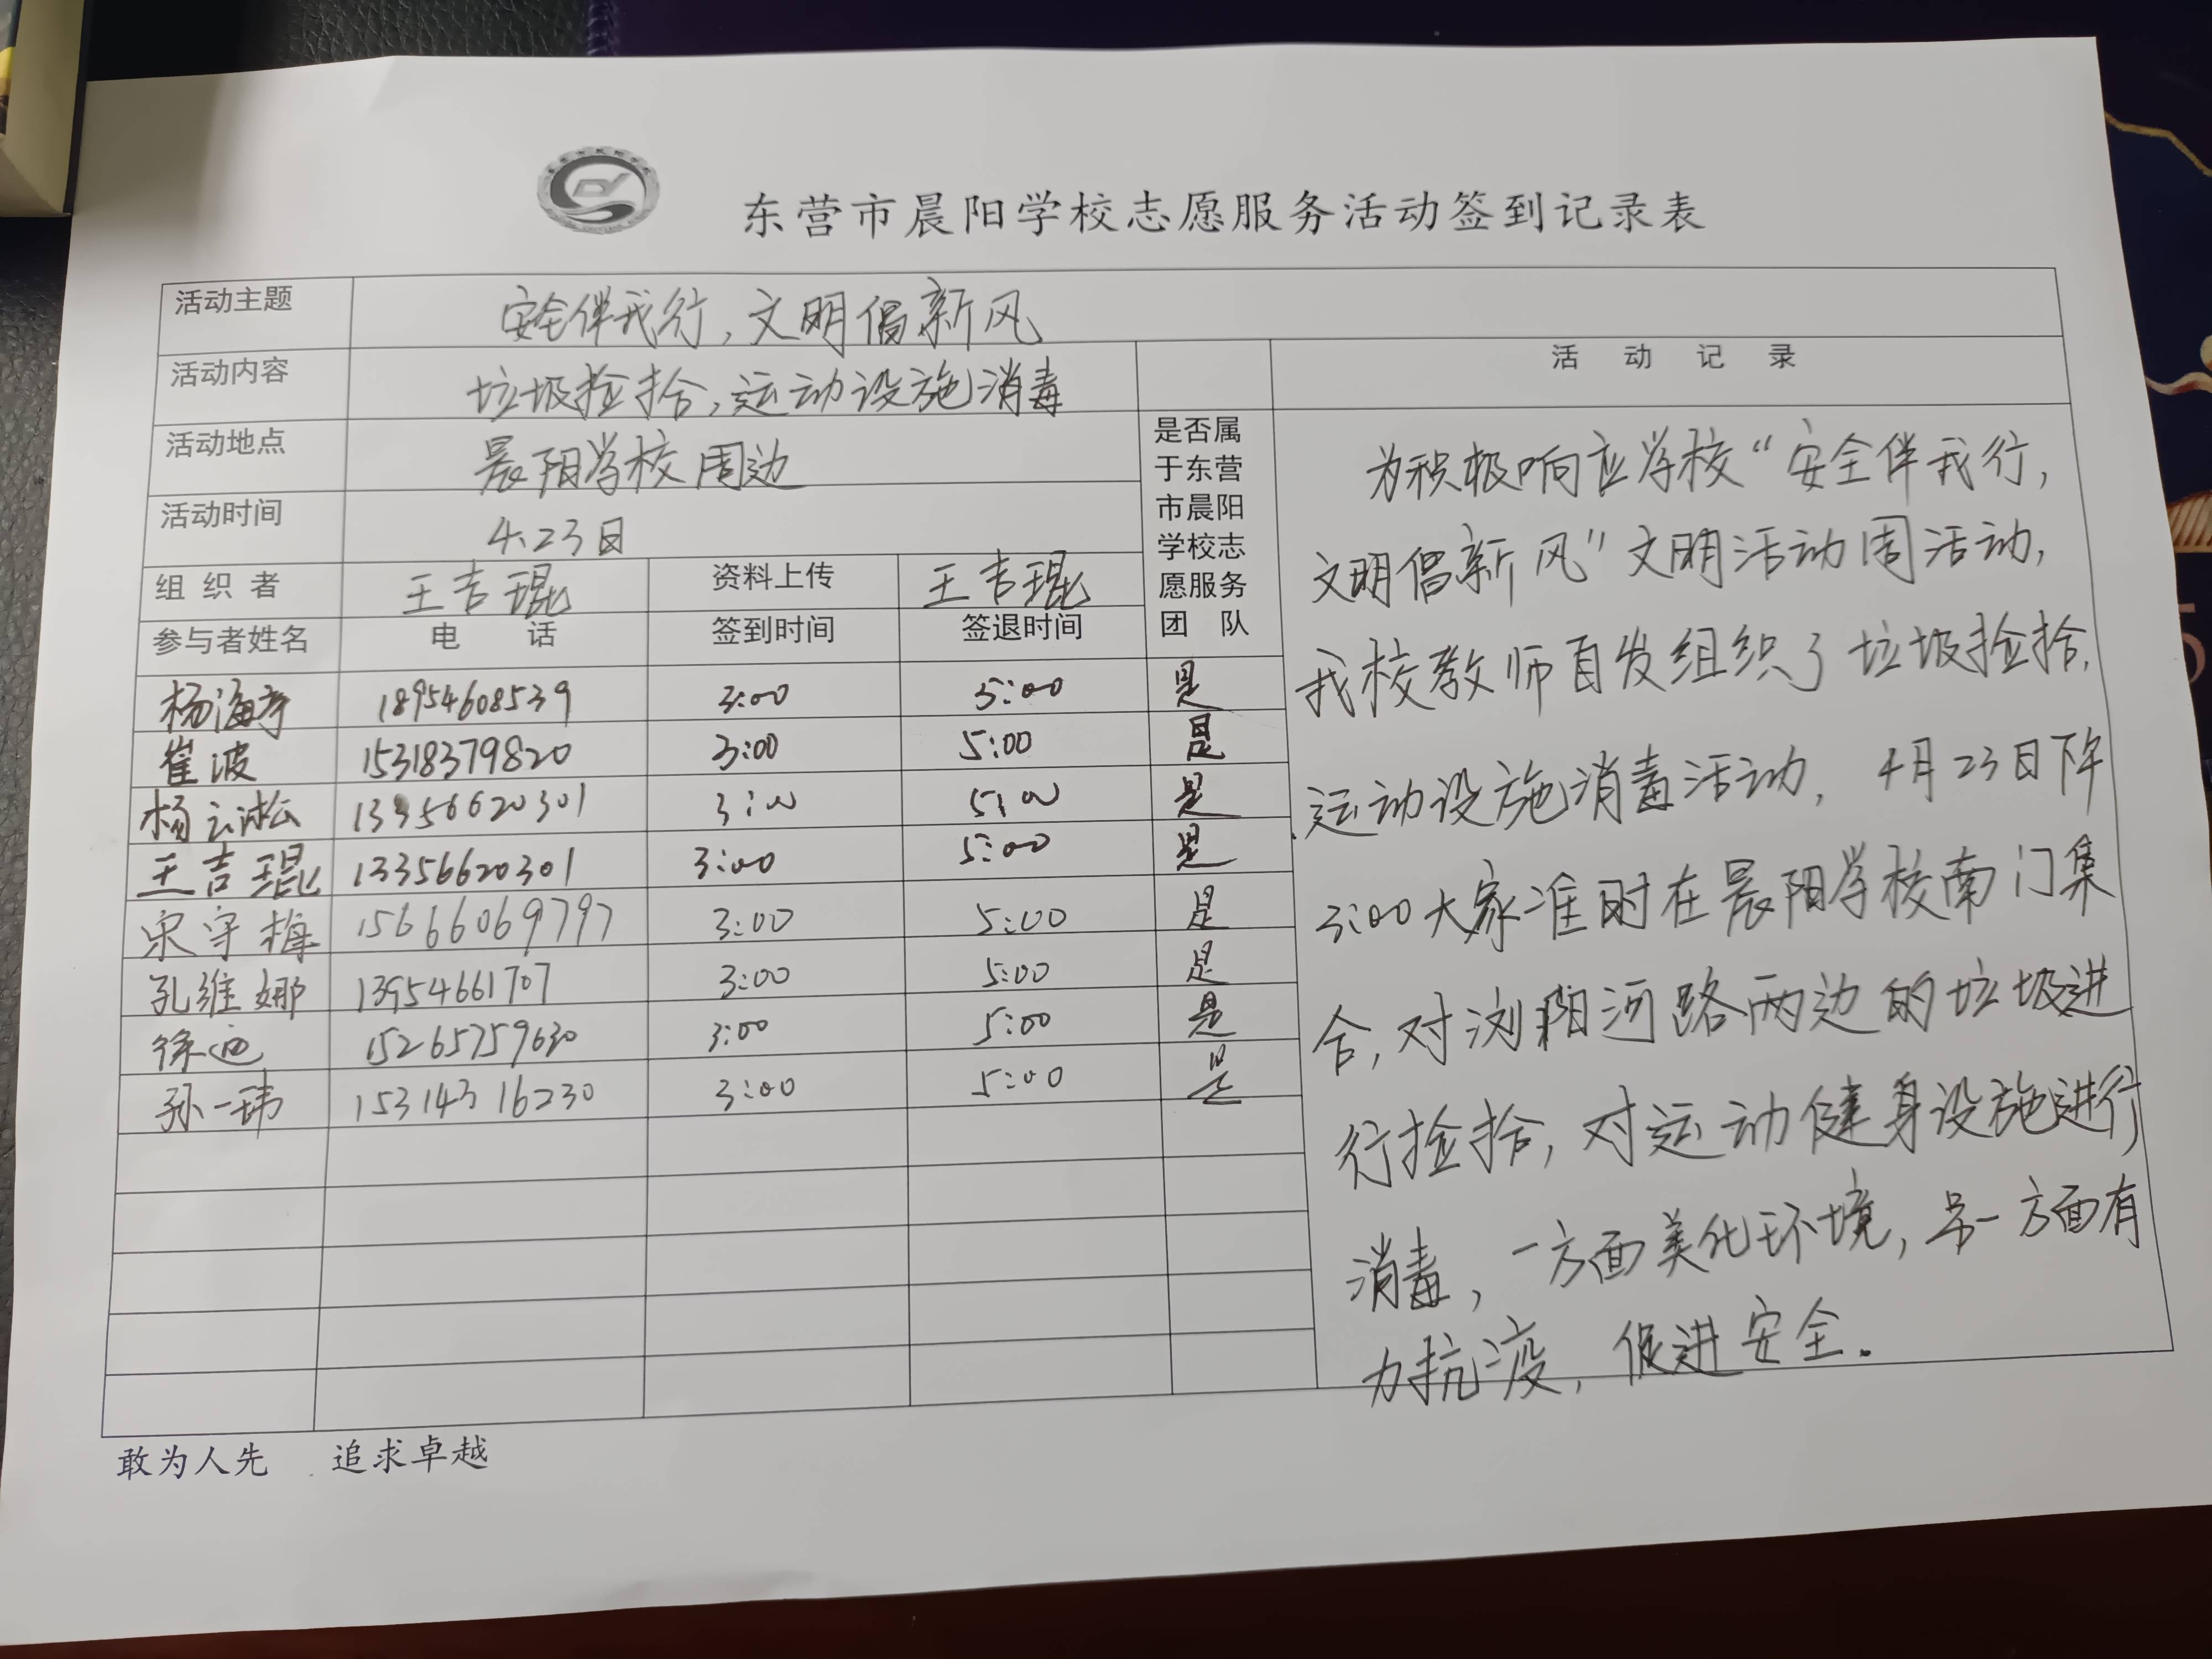 东营市晨阳学校志愿服务活动签到记录表
活动主题 安全伴我行，文明倡新风
活动内容 垃圾捡拾，运动设施消毒
活动地点 晨阳学校周边
活动时间 4.23日
组织者 王吉琨 资料上传 王吉琨
参与者姓名 电话 签到时间 签退时间
是否属
于东营
市晨阳
学校志
愿服务
团队
杨海亭 18954608539 3:00 5:00 是
崔波 15318379820 3:00 5:00 是
杨云淞 13356620301 3:00 5:00 是
王吉琨 13356620301 3:00 5:00 是
宋守梅 15666069797 3:00 5:00 是
孔维娜 13954661707 3:00 5:00 是
徐迪 15265759630 3:00 5:00 是
孙一玮 15314316230 3:00 5:00 是
活动记录
为积极响应学校“安全伴我行，
文明倡新风”文明活动周活动，
我校教师自发组织了垃圾捡拾，
运动设施消毒活动，4月23日下午
3:00大家准时在晨阳学校南门集
合，对浏阳河路两边的垃圾进
行捡拾，对运动健身设施进行
消毒，一方面美化环境，另一方面有
力抗疫，促进安全.
敢为人先 追求卓越